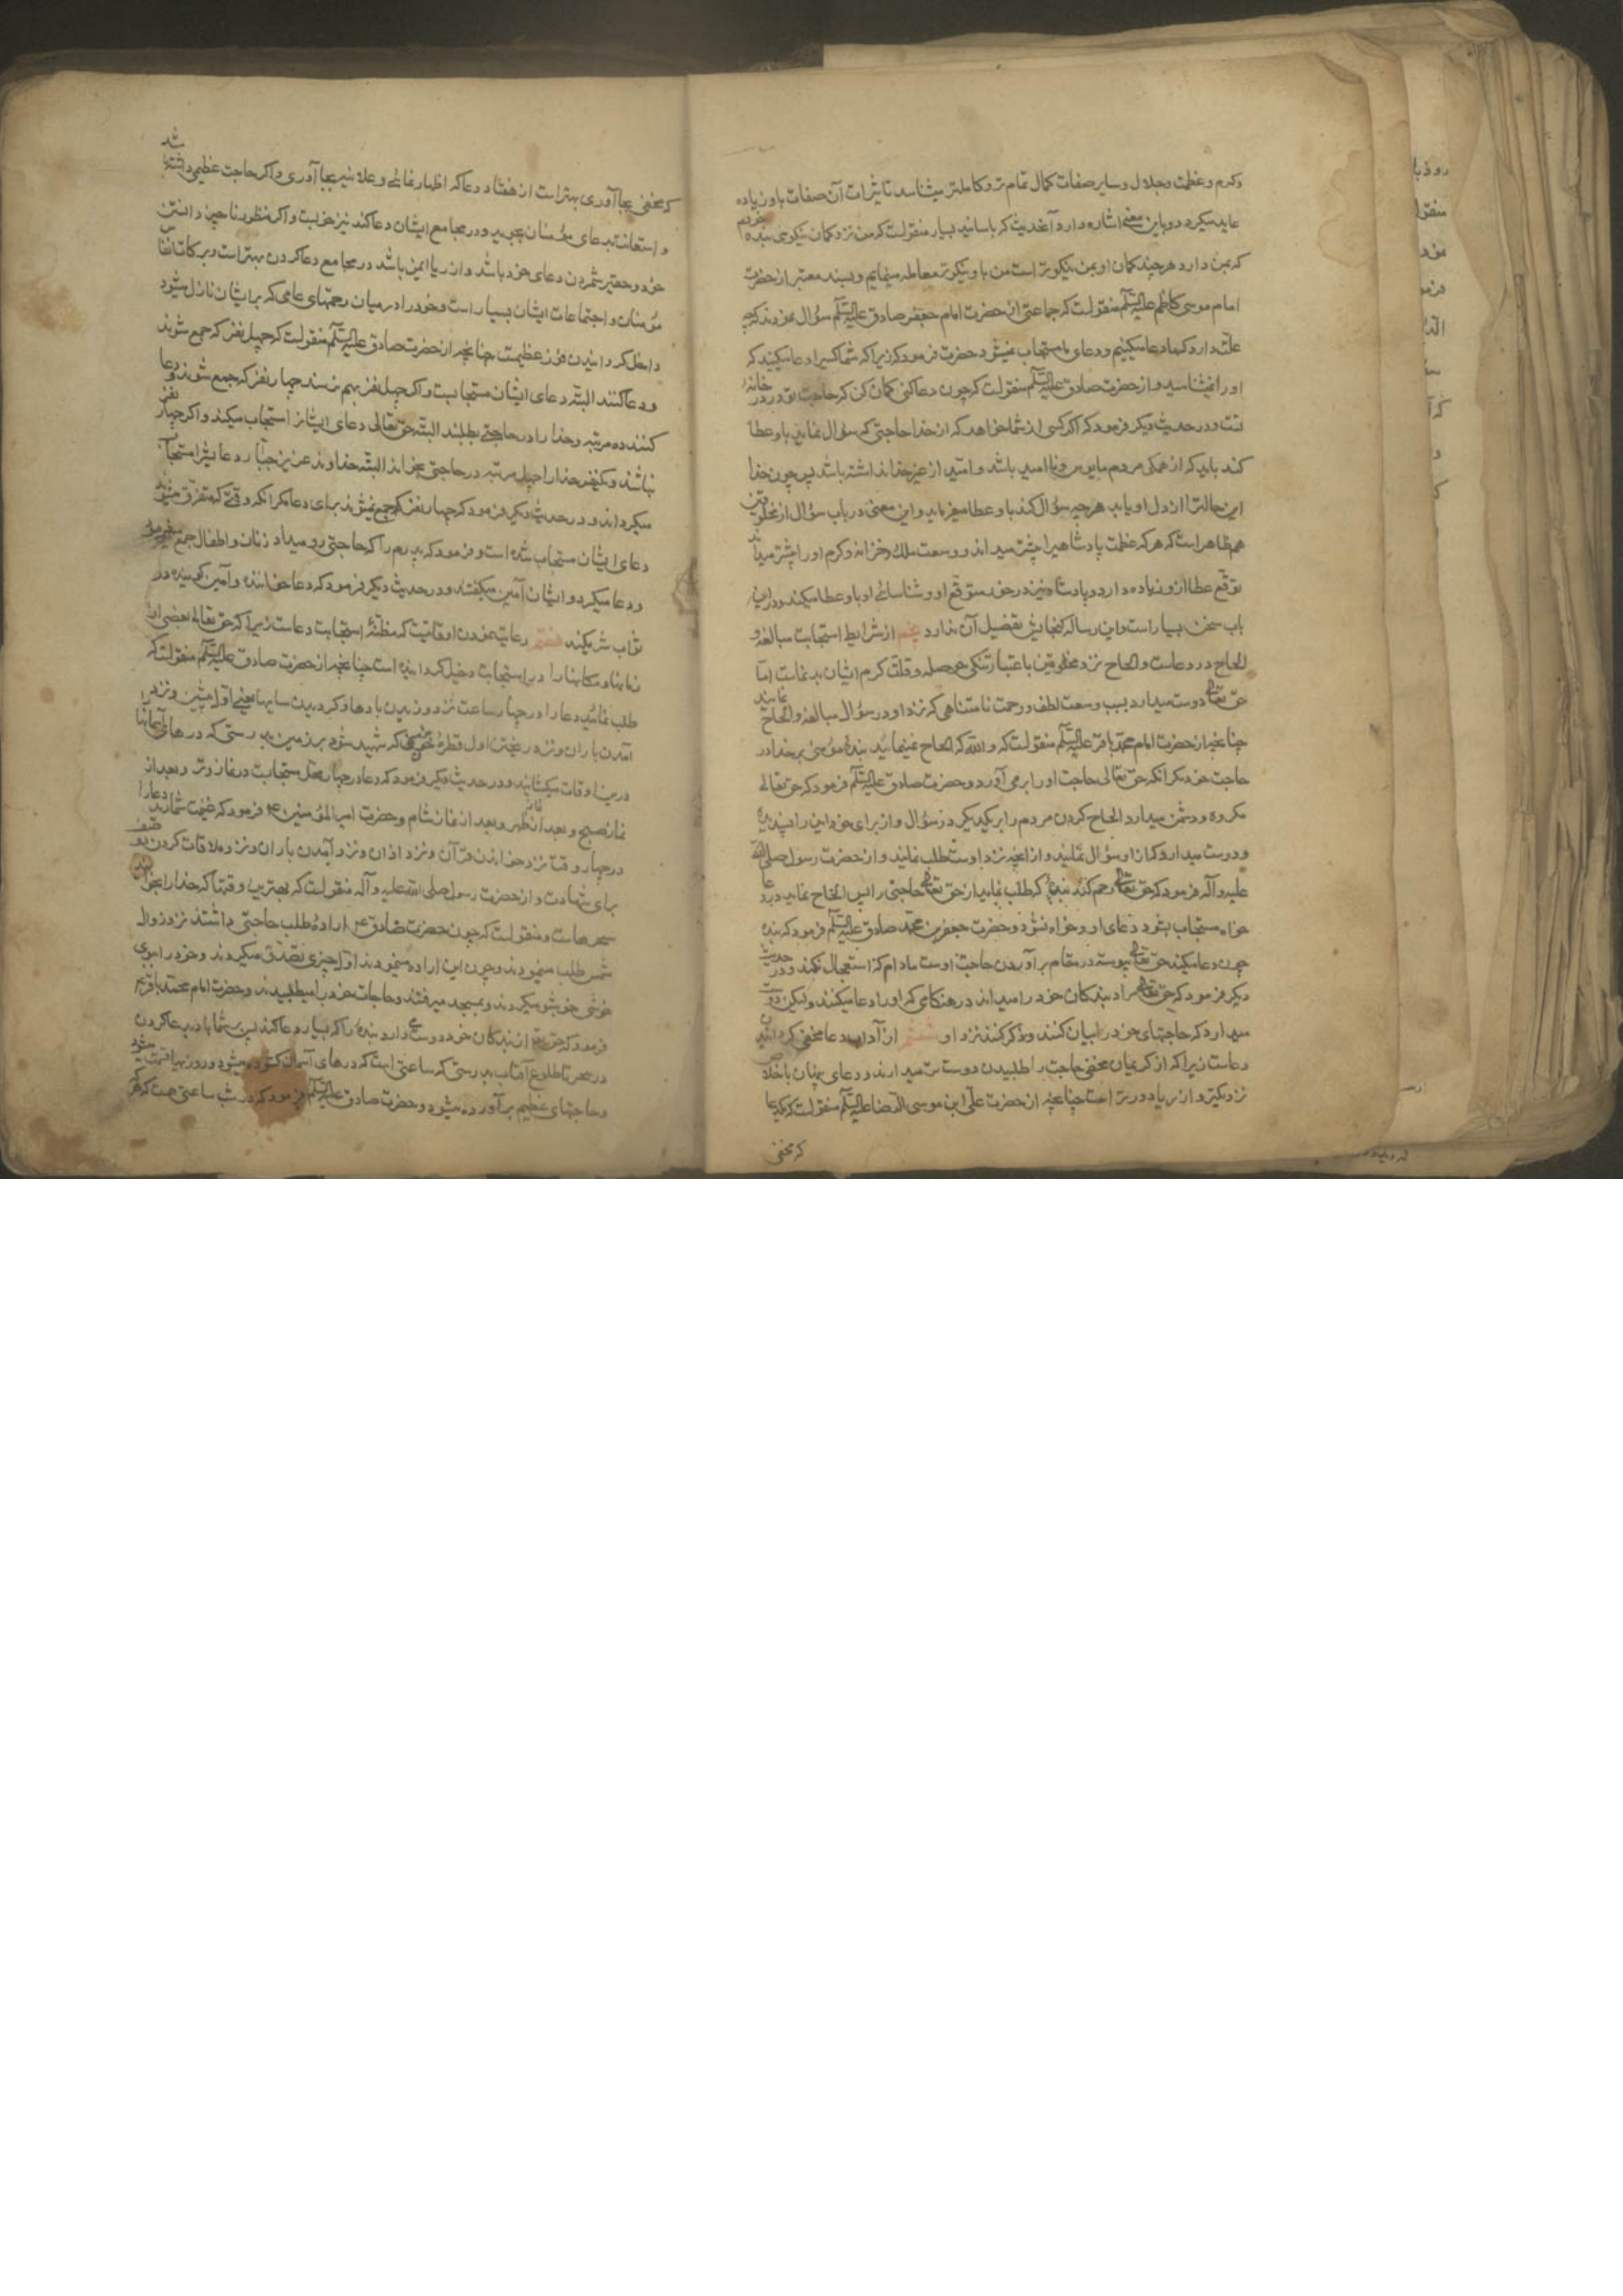 وکرم و عظمت و جلال و سایر صفات کمال تمام تر و کاملتر میشناسد تاثیرات آن صفات باو زیاده
عاید میکردد و باین معنی اشاره دارد آنحدیث که باسانید بسیار منقولست که من نزد کمان نیکوی بنده خودم
که بمن دارد هر چند کمان او بمن نیکوتر است من باو نیکوتر معامله مینمایم و بسند معتبر از حضرت
امام موسی کاظم علیه السلم منقولست که جماعتی از حضرت امام جعفر صادق علیه السلم سؤال نمودند که چه
علت دارد که ما دعا میکنیم و دعای ما مستجاب نمیشود حضرت فرمود که زیرا که شما کسیرا دعا میکنید که
او را نمیشناسید و از حضرت صادق علیه السلم منقولست که چون دعا کنی کمان کن که حاجت تو در در خانهٔ
تست و در حدیث دیکر فرمود که اکر کسی از شما خواهد که از خدا حاجتی که سؤال نماید باو عطا
کند باید که از همکی مردم مایوس و ناامید باشد و امید از غیر خدا نداشته باشد پس چون خدا
این حالت را از دل او یابد هر چه سؤال کند باو عطا میفرماید و این معنی در باب سؤال از مخلوقین
هم ظاهر است که هر که عظمت پادشاهیرا بیشتر میداند و وسعت ملک و خزانه و کرم او را بیشتر میداند
توقع عطا ازو زیاده دارد و پادشاه نیز در خور متوقع او و شناسائی او باو عطا میکند و در این
باب سخن بسیار است و این رساله کنجایش تفضیل آن ندارد پنجم از شرایط استجابت مبالغه و
الحاح در دعاست و الحاح نزد مخلوقین باعتبار تنکی حوصله و قلت کرم ایشان بدنماست اما
حق تعالی دوست میدارد بسبب وسعت لطف و رحمت نامتناهی که نزد او در سؤال مبالغه و الحاح نمایند
چنانچه از حضرت امام محمد باقر علیه السلم منقولست که و الله که الحاح نمینماید بنده مؤمنی بر خدا در
حاجت خود مکر آنکه حق تعالی حاجت او را بر می آورد و حضرت صادق علیه السلم فرمود که حق تعالی
مکروه و دشمن میدارد الحاح کردن مردم را بر یکدیکر در سؤال و از برای خود این را پسندیده
و دوست میدارد که از او سؤال نمایند و از انچه نزد اوست طلب نمایند و از حضرت رسول صلی الله
علیه و آله فرمود که حق تعالی رحم کند بنده را که طلب نماید از حق تعالی حاجتی را پس الحاح نماید در دعا
خواه مستجاب بشود دعای او و خواه نشود و حضرت جعفر بن محمد صادق علیه السلم فرمود که بنده
چون دعا میکند حق تعالی پیوسته در مقام برآوردن حاجت اوست مادام که استعجال نکند و در حدیث
دیکر فرمود که حق تعالی مراد بندکان خود را میداند در هنکامی که او را دعا میکنند ولیکن دوست
میدارد که حاجتهای خود را بیان کنند و ذکر کنند نزد او ششم از آداب دعا مخفی کردانیدن
دعاست زیرا که از کریمان مخفی حاجت را طلبیدن دوست تر میدارند و دعای پنهان باخلاص
نزدیکتر و از ریا دورتر است چنانچه از حضرت علی ابن موسی الرضا علیه السلم منقولست که یکدعا
که مخفی
که مخفی بجا آوری بهتر است از هفتاد دعا که اظهار نمائی و علانیه بجا آوری و اکر حاجت عظیمی داشته باشد
و استعانت بدعای مؤمنان جوید و در مجامع ایشان دعا کند نیز خوبست و اکر منظور ناچیز دانستن
خود و حقیر شمردن دعای خود باشد و از ریا ایمن باشد در مجامع دعا کردن بهتر است و برکات انفاس
مؤمنان و اجتماعات ایشان بسیار است و خود را در میان رحمتهای عامی که بر ایشان نازل میشود
داخل کردانیدن فوز عظیمست چنانچه از حضرت صادق علیه السلم منقولست که چهل نفر که جمع شوند
و دعا کنند البته دعای ایشان مستجابست و اکر چهل نفر بهم نرسند چهار نفر که جمع شوند و دعا
کنند ده مرتبه و خدا را در حاجتی بطلبند البته حق تعالی دعای ایشانرا استجاب میکند و اکر چهار نفر
نباشند و یکنفر خدا را چهل مرتبه در حاجتی بخواند البته خداوند عزیز جبار دعایشرا مستجاب
میکرداند و در حدیث دیکر فرمود که چهار نفر که جمع نمیشوند برای دعا مکر آنکه وقتی که متفرق میشوند
دعای ایشان مستجاب شده است و فرمود که پدرم را که حاجتی رو میداد زنان و اطفال جمع میفرمود
و دعا میکرد و ایشان آمین میکفتند و در حدیث دیکر فرمود که دعا خواننده و آمین کوینده در
ثواب شریکند هفتم رعایت نمودن اوقاتیست که مظنهٔ استجابت دعاست زیرا که حق تعالی بعضی از
زمانها و مکانها را در استجابت دخیل کردانیده است چنانچه از حضرت صادق علیه السلم منقولست که
طلب نمائید دعا را در چهار ساعت نزد وزیدن بادها و کردیدن سایها یعنی اول پیشین و نزد
آمدن باران و نزد ریختن اول قطرهٔ خون مؤمنی که شهید شود بر زمین بدرستی که درهای آسمانها
درین اوقات میکشایند و در حدیث دیکر فرمود که دعا در چهار محل مستجابست در نماز وتر و بعد از
نماز صبح و بعد از نماز ظهر و بعد از نماز شام و حضرت امیر المؤمنین ع فرمود که غنیمت شمارید دعا را
در چهار وقت نزد خواندن قرآن و نزد اذان و نزد آمدن باران و نزد ملاقات کردن دو صف
برای شهادت و از حضرت رسول صلی الله علیه و آله منقولست که بهترین وقتها که خدا را بخوانید
سحرهاست و منقولست که چون حضرت صادق ع ارادهٔ طلب حاجتی داشتند نزد زوال
شمس طلب مینمودند و چون این اراده مینمودند اول چیزی تصدق میکردند و خود را ببوی
خوشی خوشبو میکردند و بمسجد میرفتند و حاجات خود را میطلبیدند و حضرت امام محمد باقر ع
فرمود که حق تعالی از بندکان خود دوست می دارد بنده را که بسیار دعا کند پس بر شما باد بدعا کردن
در سحر تا طلوع آفتاب بدرستی که ساعتی است که درهای آسمان کشوده میشود و روزیها قسمت میشود
و حاجتهای عظیم برآورده میشود و حضرت صادق علیه السلم فرمود که در شب ساعتی هست که هر که